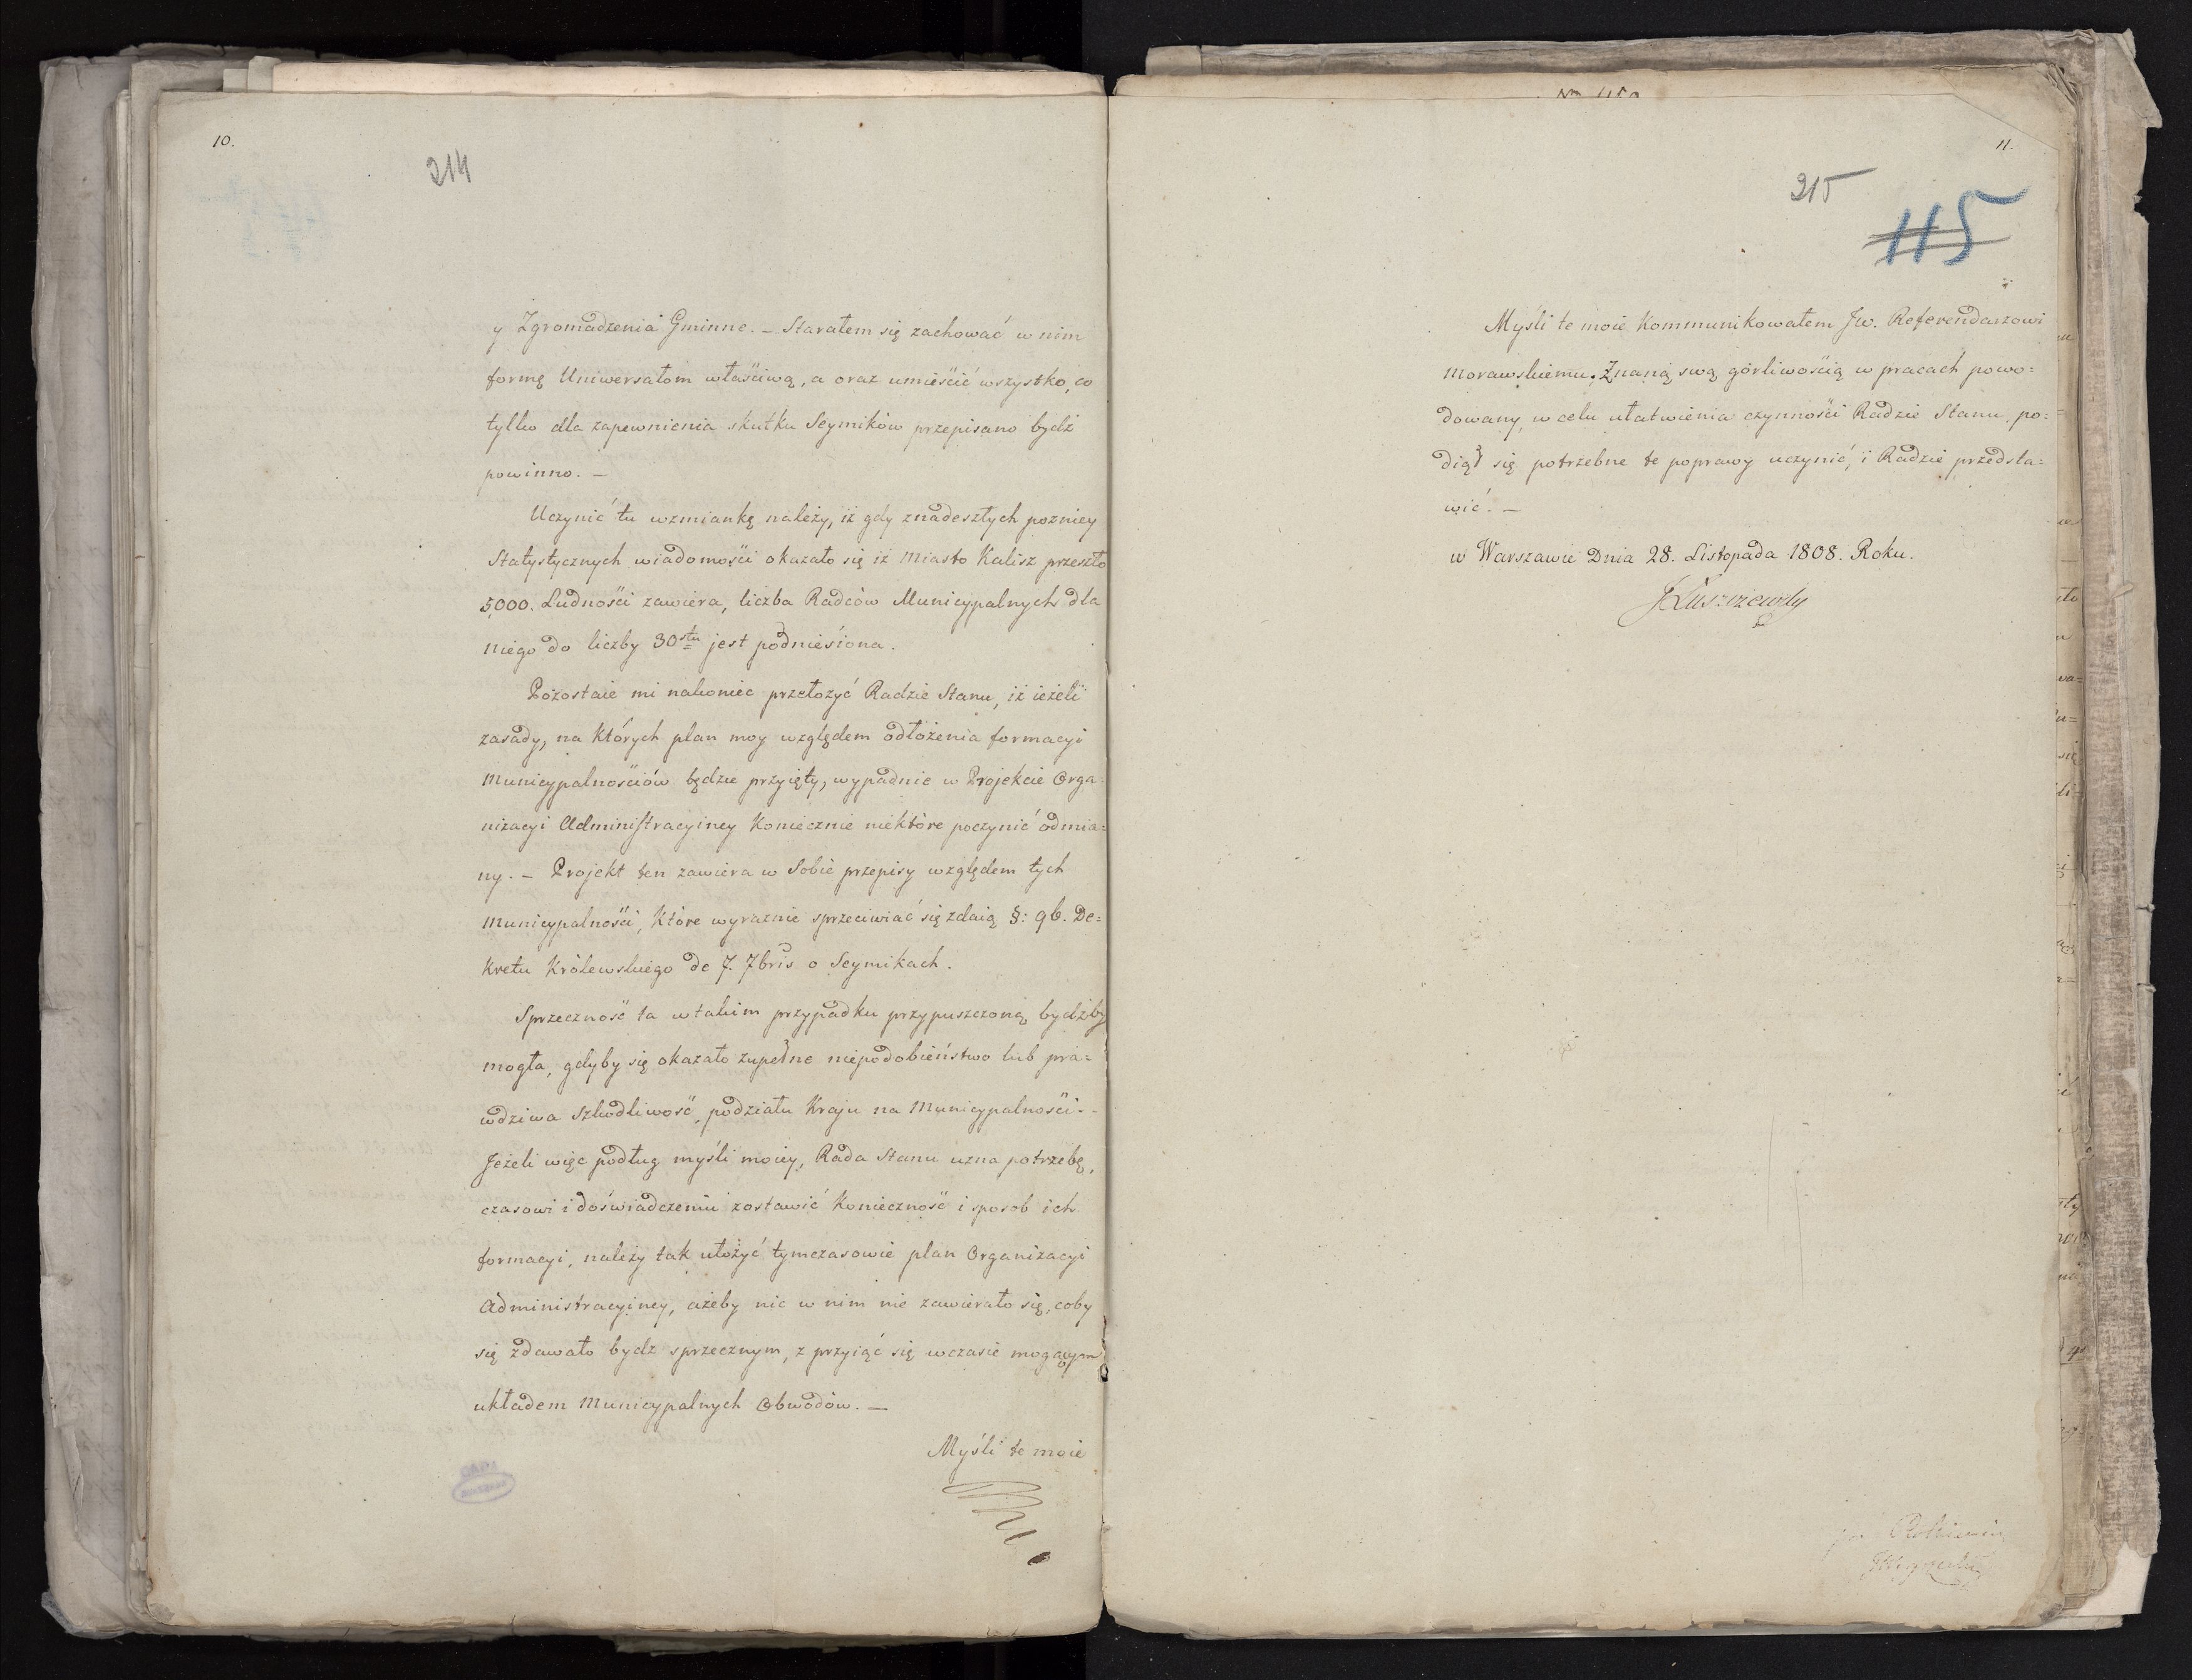 10.
214
y Zgromadzenia Gminne. – Starałem się zachować w nim
formę Uniwersałom właściwą, a oraz umieścić wszystko, co
tylko dla zapewnienia skutku Seymików przepisano bydź
powinno. –
Uczynić tu wzmiankę należy, iż gdy z nadeszłych pozniey
Statystycznych wiadomości okazało się iż Miasto Kalisz przeszło
5000. Ludności zawiera, liczba Radców Municypalnych dla
niego do liczby 30stu jest podniesiona.
Pozostaie mi nakoniec przełozyć Radzie Stanu, iż ieżeli
zasady, na których plan moy względem odłożenia formacyi
Municypalnościów będzie przyięty, wypadnie w Projekcie Orga=
nizacyi Administracyiney Koniecznie niektóre poczynić odmia=
ny. – Projekt ten zawiera w Sobie przepisy względem tych
Municypalności, Które wyraznie sprzeciwiać się zdaią §: 96. De=
kretu Królewskiego de 7. 7bris o Seymikach.
Sprzeczność ta w takim przypadku przypuszczoną bydźby
mogła, gdyby się okazało zupełne niepodobieństwo lub pra=
wdziwa Szkodliwość, podziału Kraju na Municypalności. –
Jeżeli więc podług myśli moiey, Rada Stanu uzna potrzebę,
czasowi i doświadczeniu zostawić Konieczność i sposob ich
formacyi, należy tak ułożyć tymczasowie plan Organizacyi
Administracyiney, ażeby nic w nim nie zawierało się, coby
się zdawało bydz sprzecznym, z przyiąć się w czasie mogącym
układem Municypalnych Obwodów. –
Myśli te moie
11.
215
115
Myśli te moie Kommunikowałem Jw. Referendarzowi
Morawskiemu. Znaną swą górliwością w pracach powo=
dowany, w celu ułatwienia czynności Radzie Stanu, po=
diął się potrzebne te poprawy uczynić, i Radzie przedsta=
wić. –
w Warszawie Dnia 28. Listopada 1808. Roku.
JŁuszczewsky